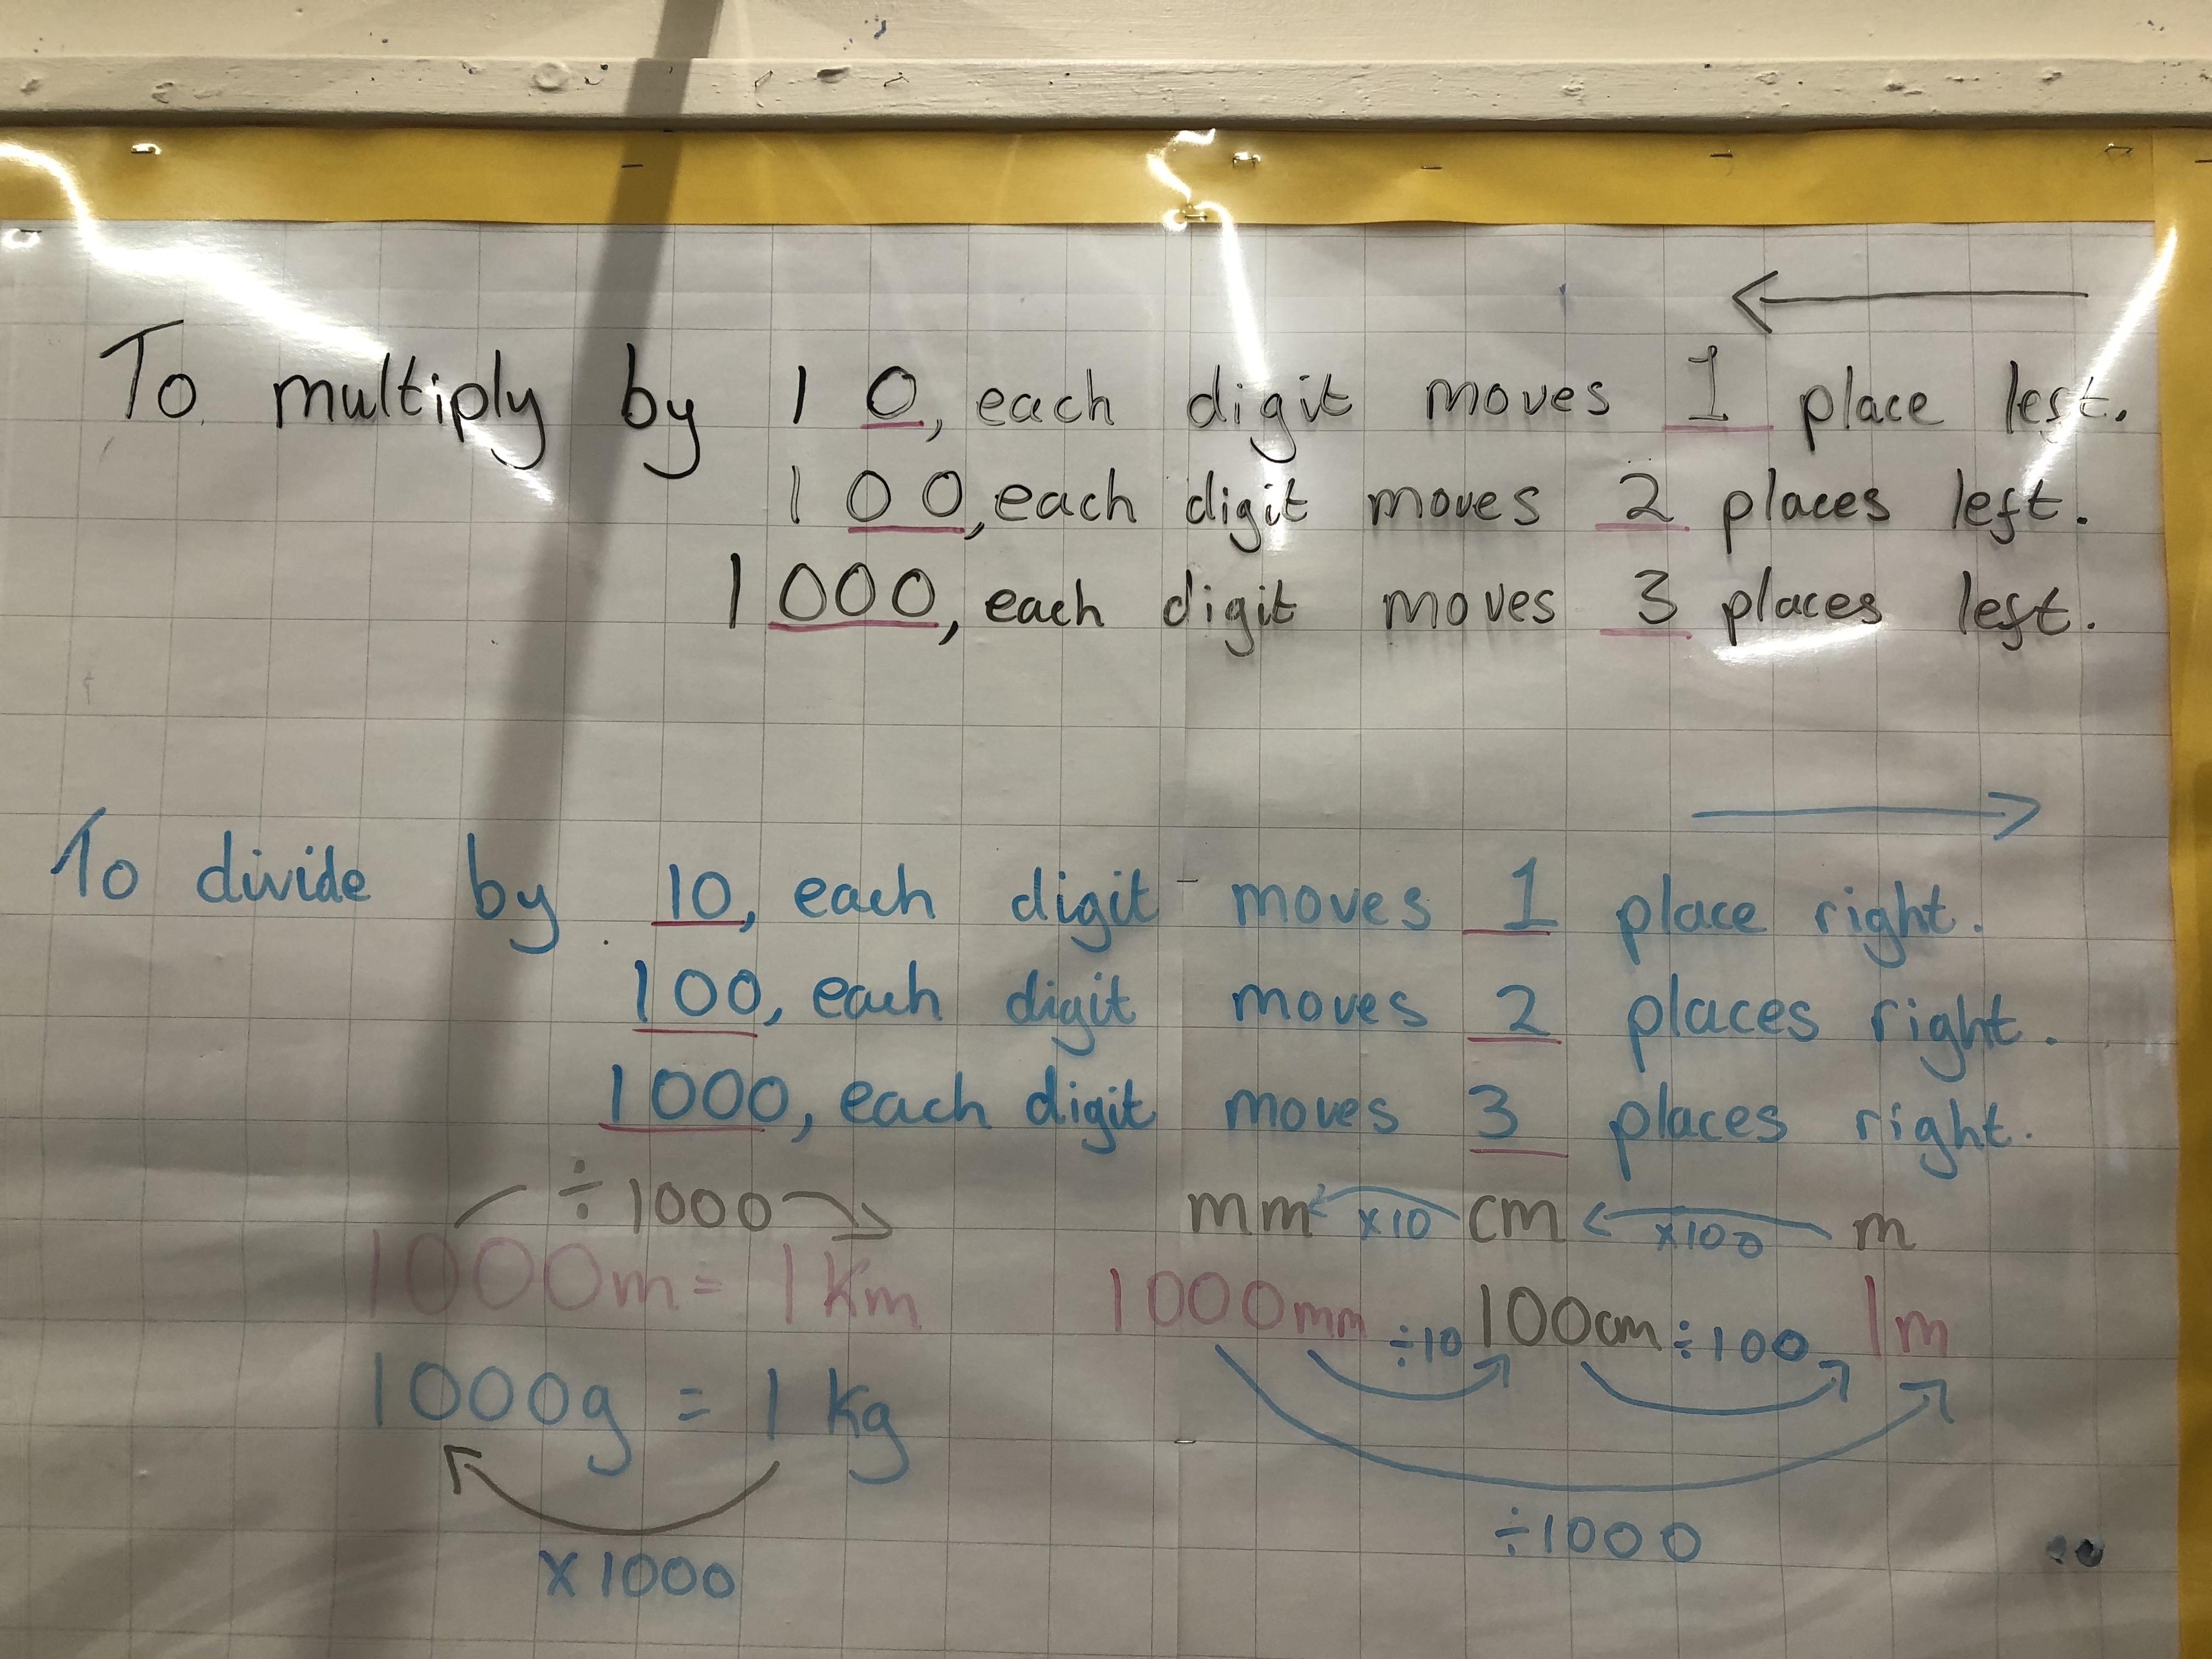 To multiply by 10, each digit moves 1 place left.
100, each digit moves 2 places left.
1000, each digit moves 3 places left.
To divide by 10, each digit moves 1 place right.
100, each digit moves 2 places right.
1000, each digit moves 3 places right.
÷1000
1000m = 1Km
1000g = 1 Kg
x1000
mm x10 cm x100 m
1000mm ÷10 100cm ÷100 1m
÷1000